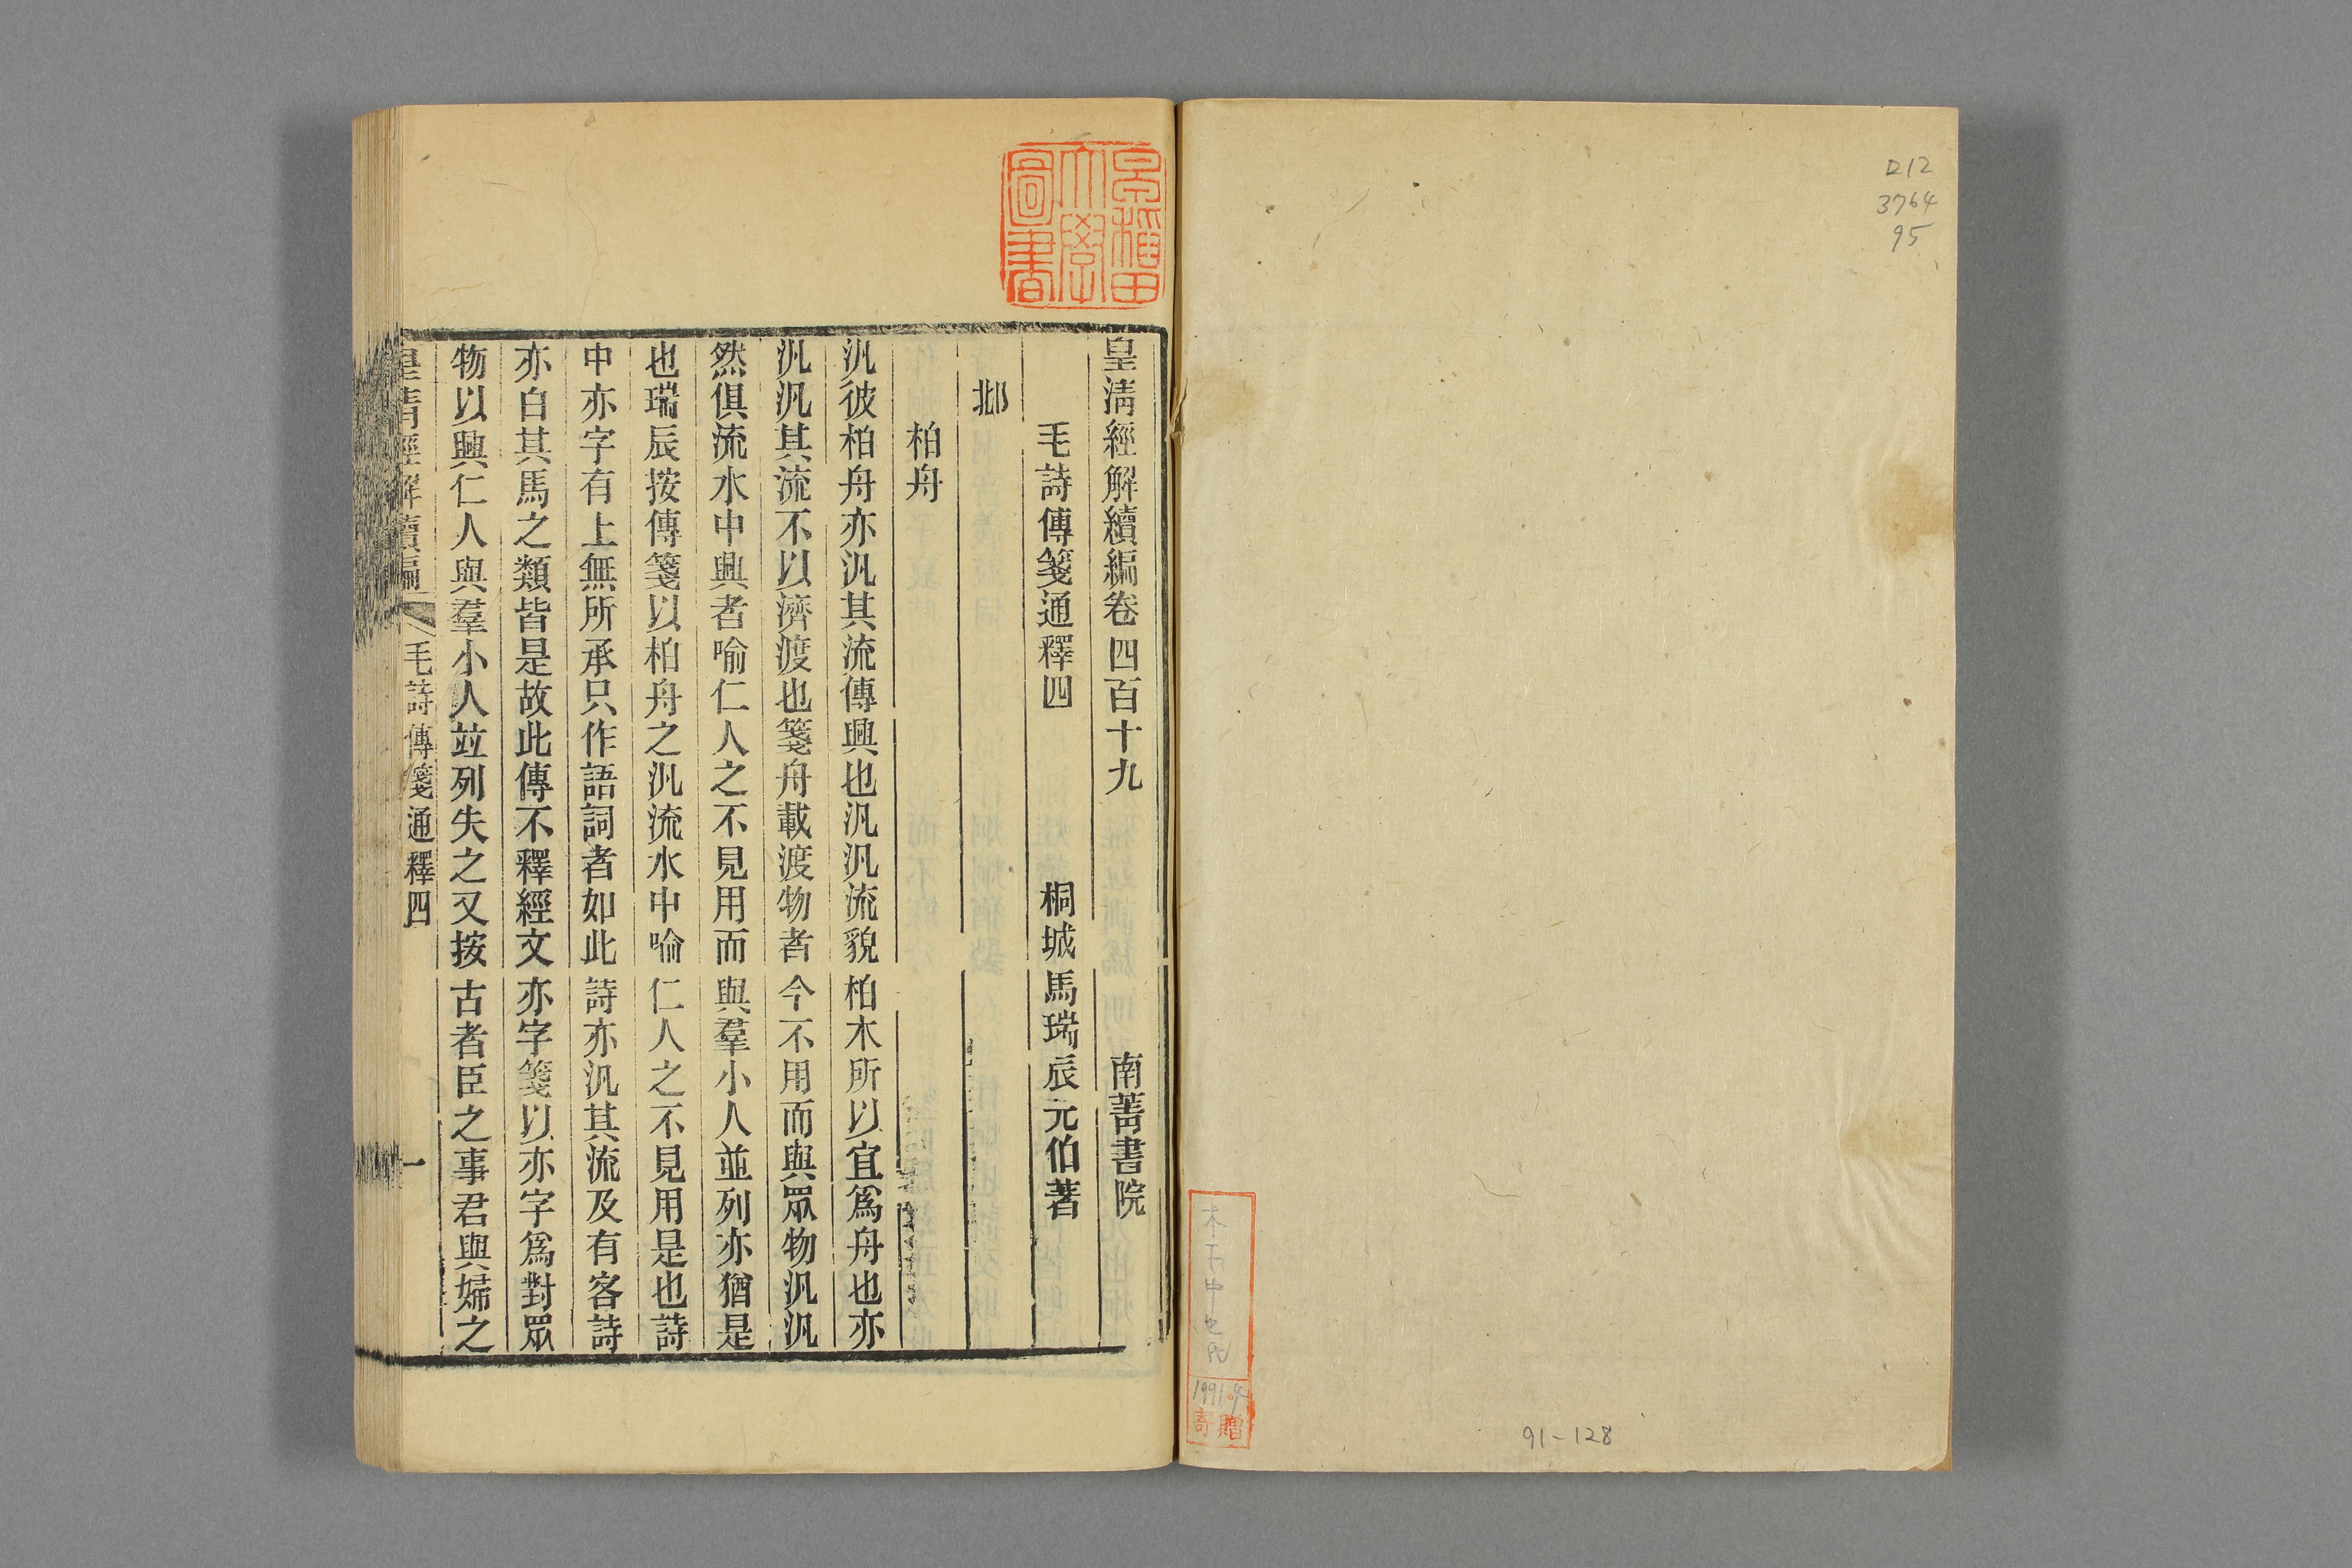 D12
3764
95
1991.4
寄贈
91-128
早稲田
大學
圖書
皇淸經解續編卷四百十九 南菁書院
毛詩傳箋通釋四 桐城馬瑞辰元伯著
邶
柏舟
汎彼柏舟亦汎其流傳興也汎汎流貌柏木所以宜爲舟也亦
汎汎其流不以濟渡也箋舟載渡物者今不用而與眾物汎汎
然俱流水中興者喻仁人之不見用而與羣小人並列亦猶是
也瑞辰按傳箋以柏舟之汎流水中喻仁人之不見用是也詩
中亦字有上無所承只作語詞者如此詩亦汎其流及有客詩
亦白其馬之類皆是故此傳不釋經文亦字箋以亦字爲對眾
物以興仁人與羣小人竝列失之又按古者臣之事君與婦之
皇淸經解續編 毛詩傳箋通釋四 一